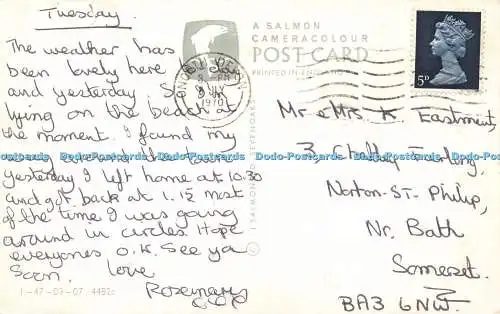 Tuesday.
The weather has
been lovely here today
and yesterday
lying on the beach at
the moment. I found my
yesterday I left home at 10.30
and got back at 1.15 most
of the time I was going
around in circles. Hope
everyones O.K. See ya
soon. Love
Rosemary
A SALMON
CAMERACOLOUR
POST CARD
PRINTED IN ENGLAND
1970
5D
Mr & Mrs K Eastment
3,
Norton-St-Philip,
Nr. Bath
Somerset.
BA3 6NW.
Dodo-Postcards Dodo-Postcards Dodo-Postcards Dodo-Postcards Dodo-Postcards
J SALMON LTD SEVENOAKS ©
1-47-03-07 4492c